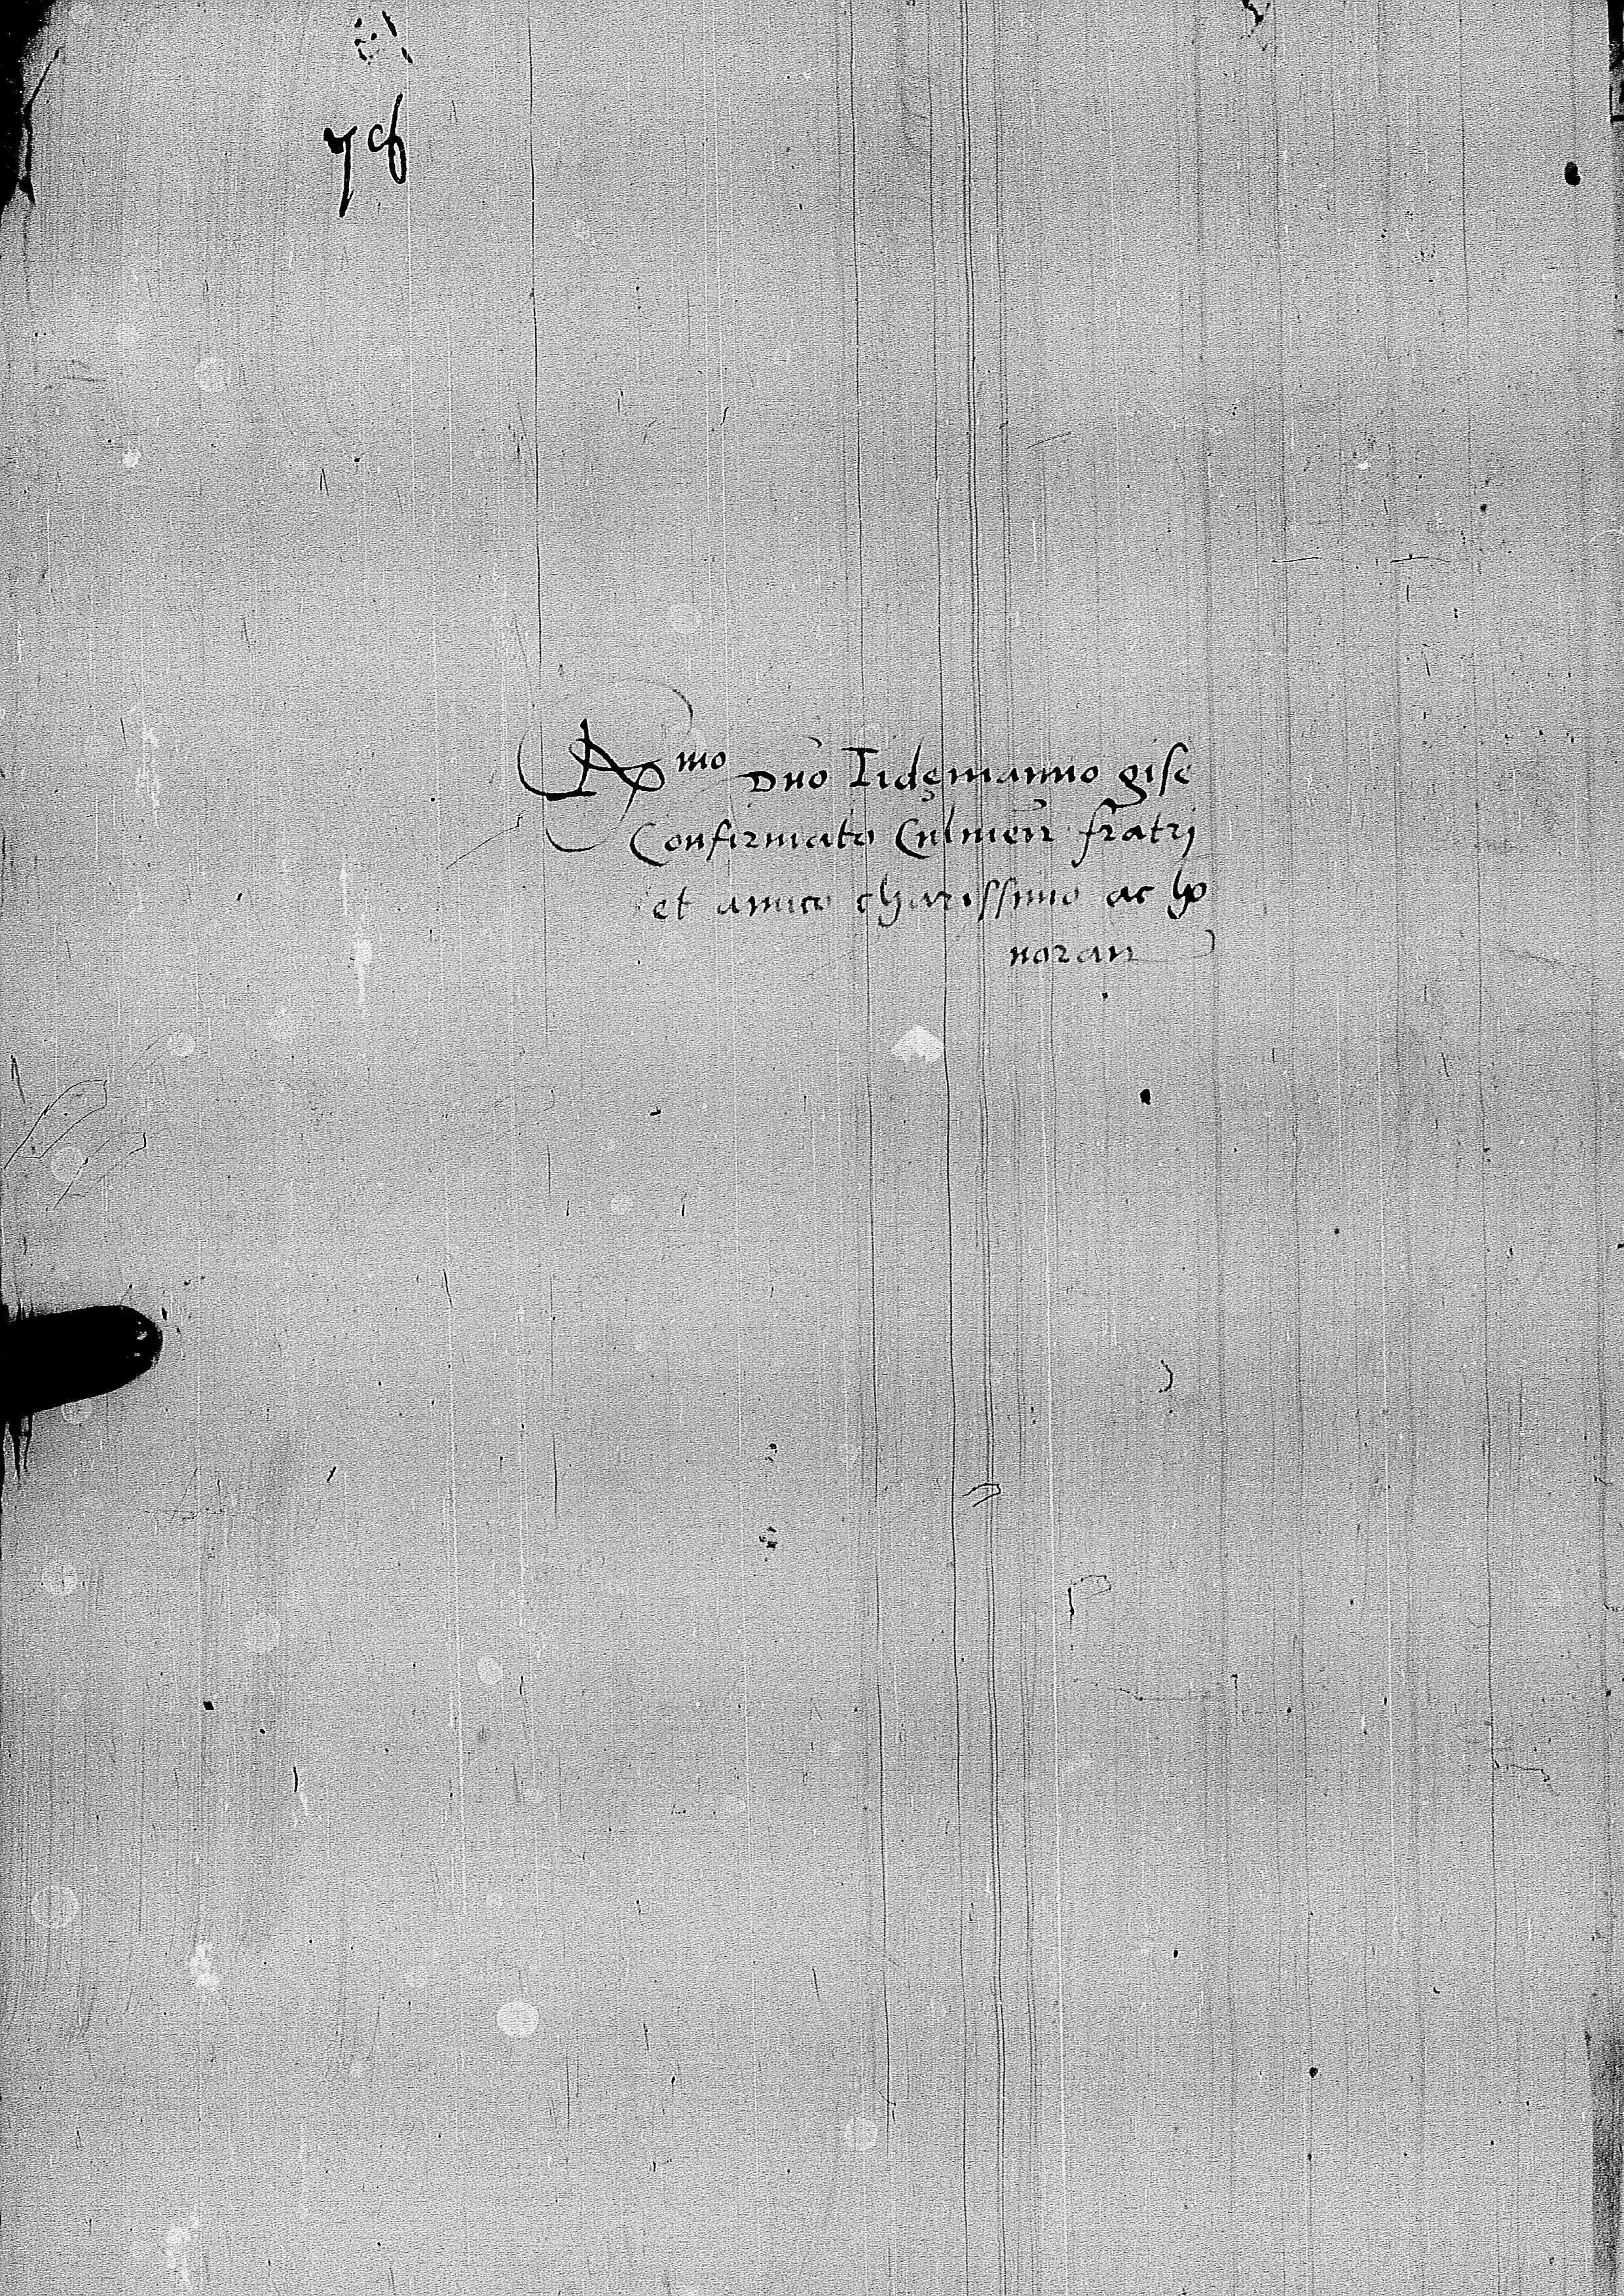 R<sup>mo</sup> Dno Tidemanno gise
Confirmato Culmen fratri
et amico charissimo ac ho
noran